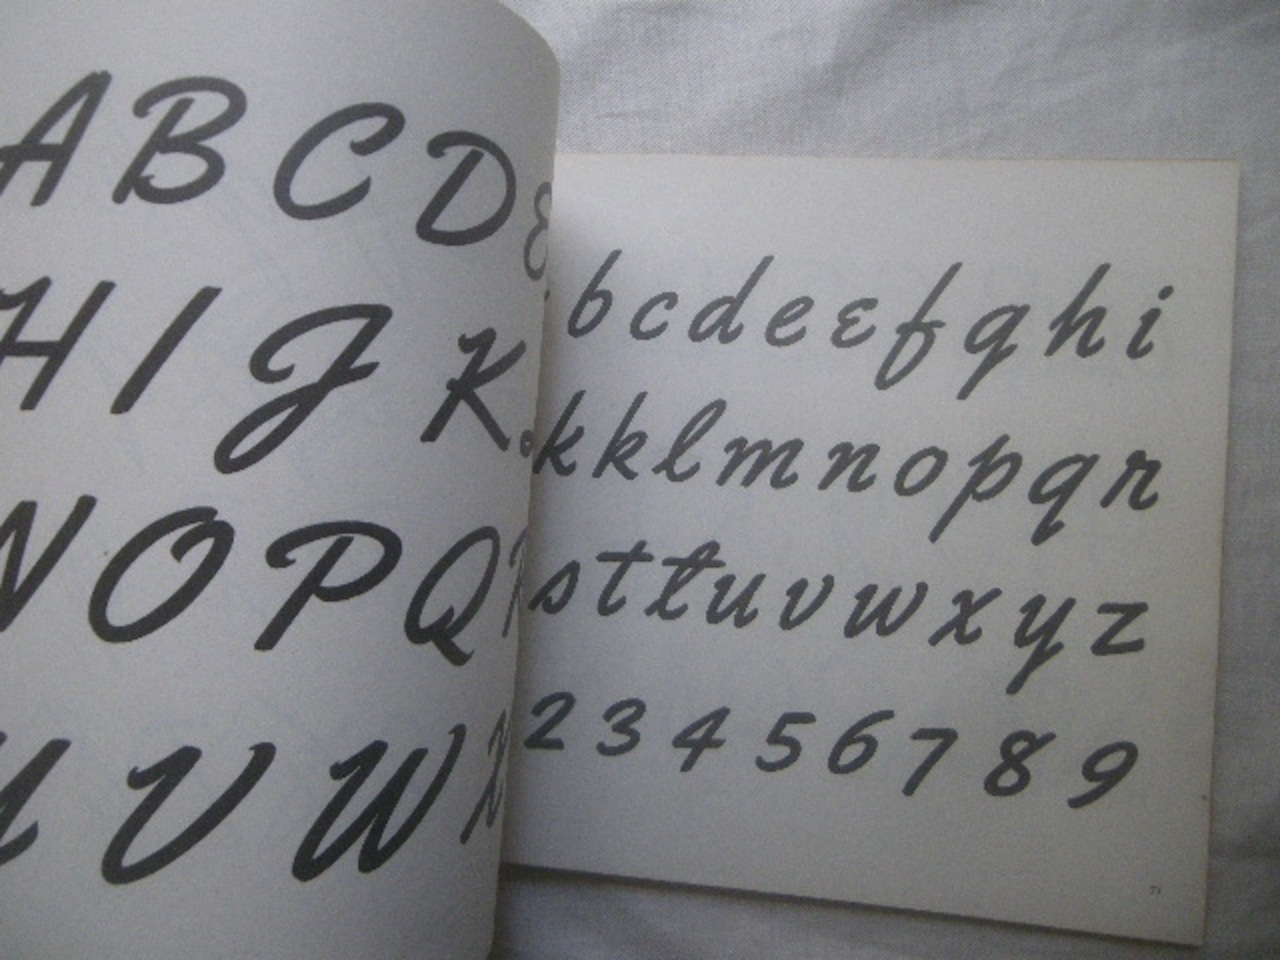 A B C D E
H I J K
N O P Q R
U V W X
b c d e ε f g h i
k k l m n o p q r
s t t u v w x y z
2 3 4 5 6 7 8 9
71